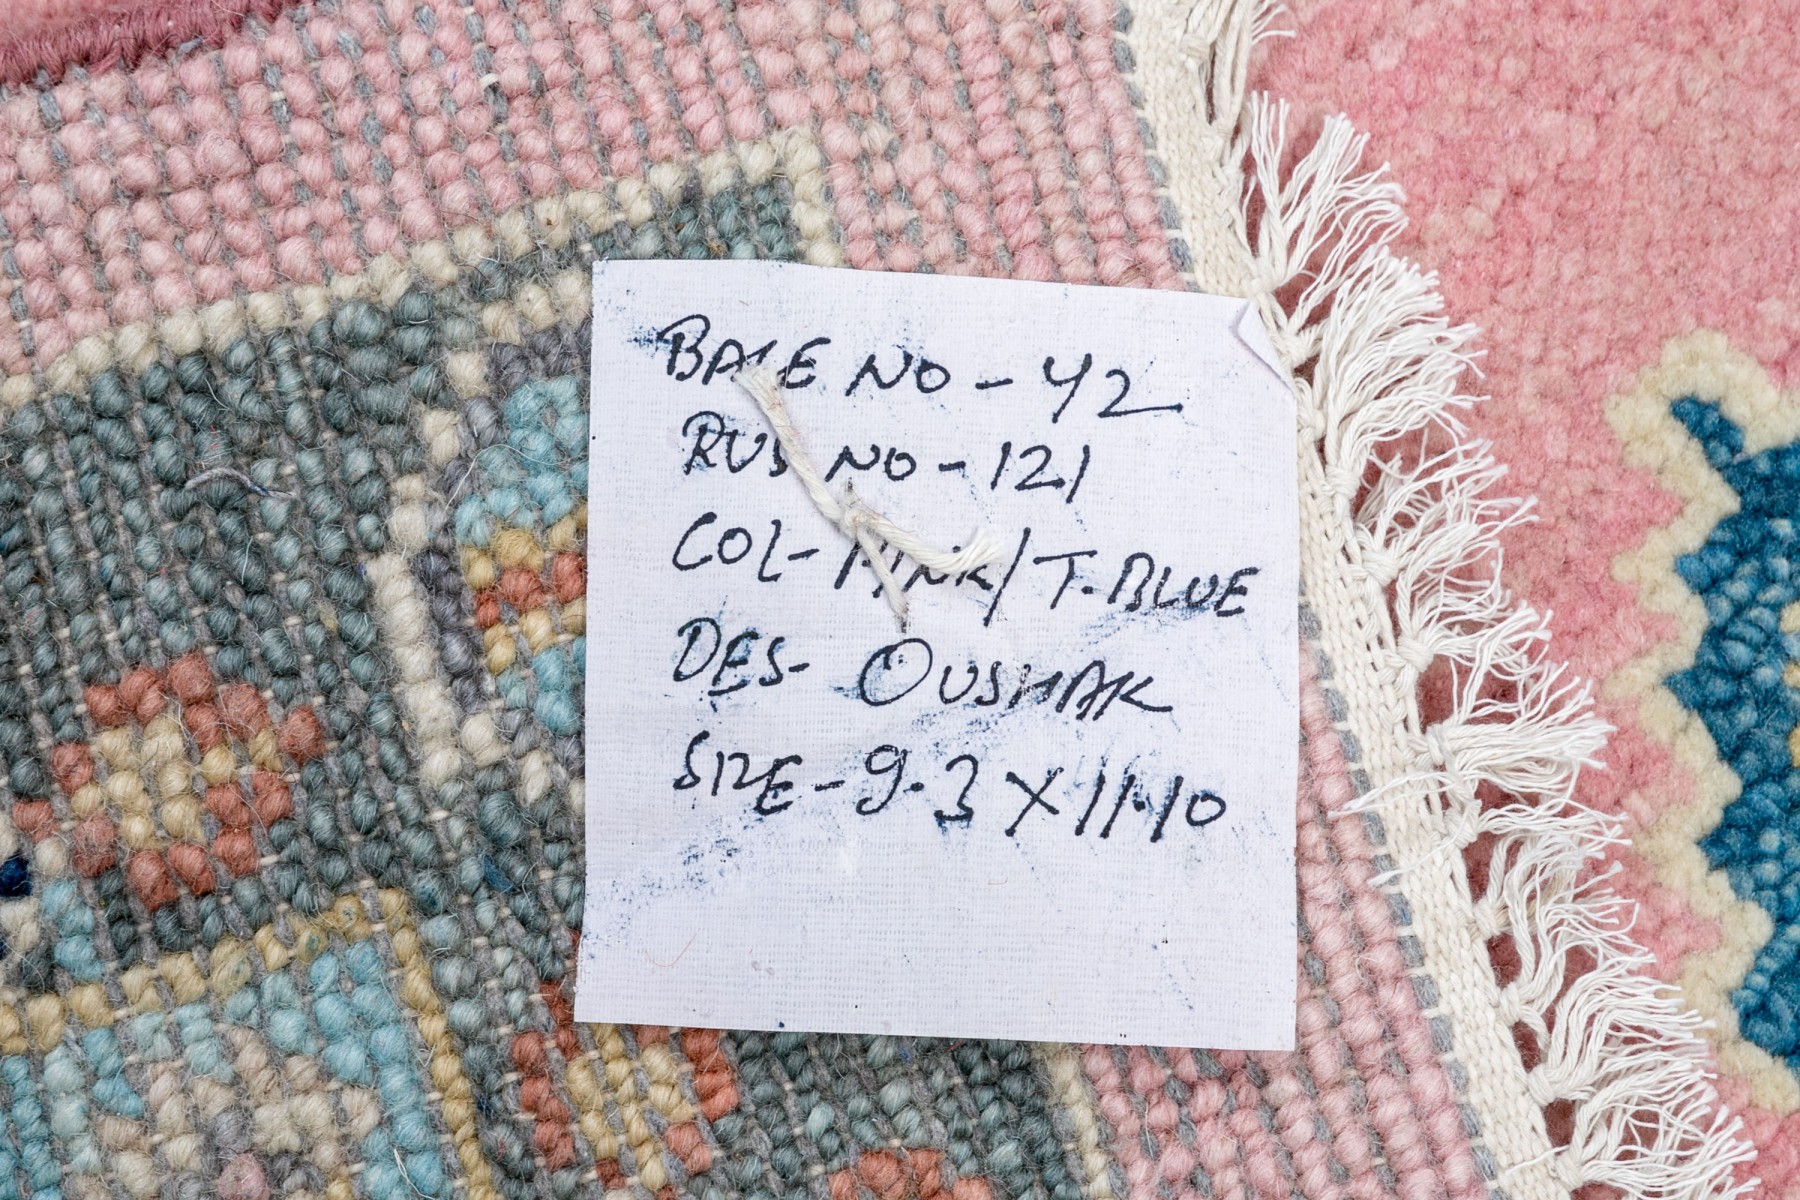 BALE NO - 42
RUG NO - 121
COL - PINK/T.BLUE
DES - OUSHAK
SIZE - 9.3 X 11.10